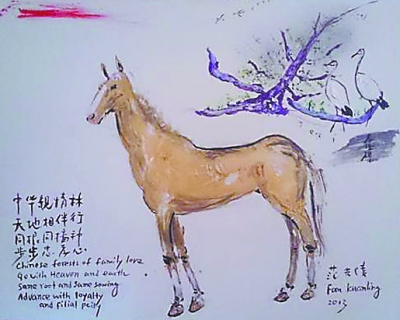 中华親情林
天地相伴行
同根同播种
步步忠孝心
Chinese forests of family love
Go with Heaven and earth
Same root and same sowing
Advance with loyalty
and filial piety
范光陵
Fan Kuanling
2013